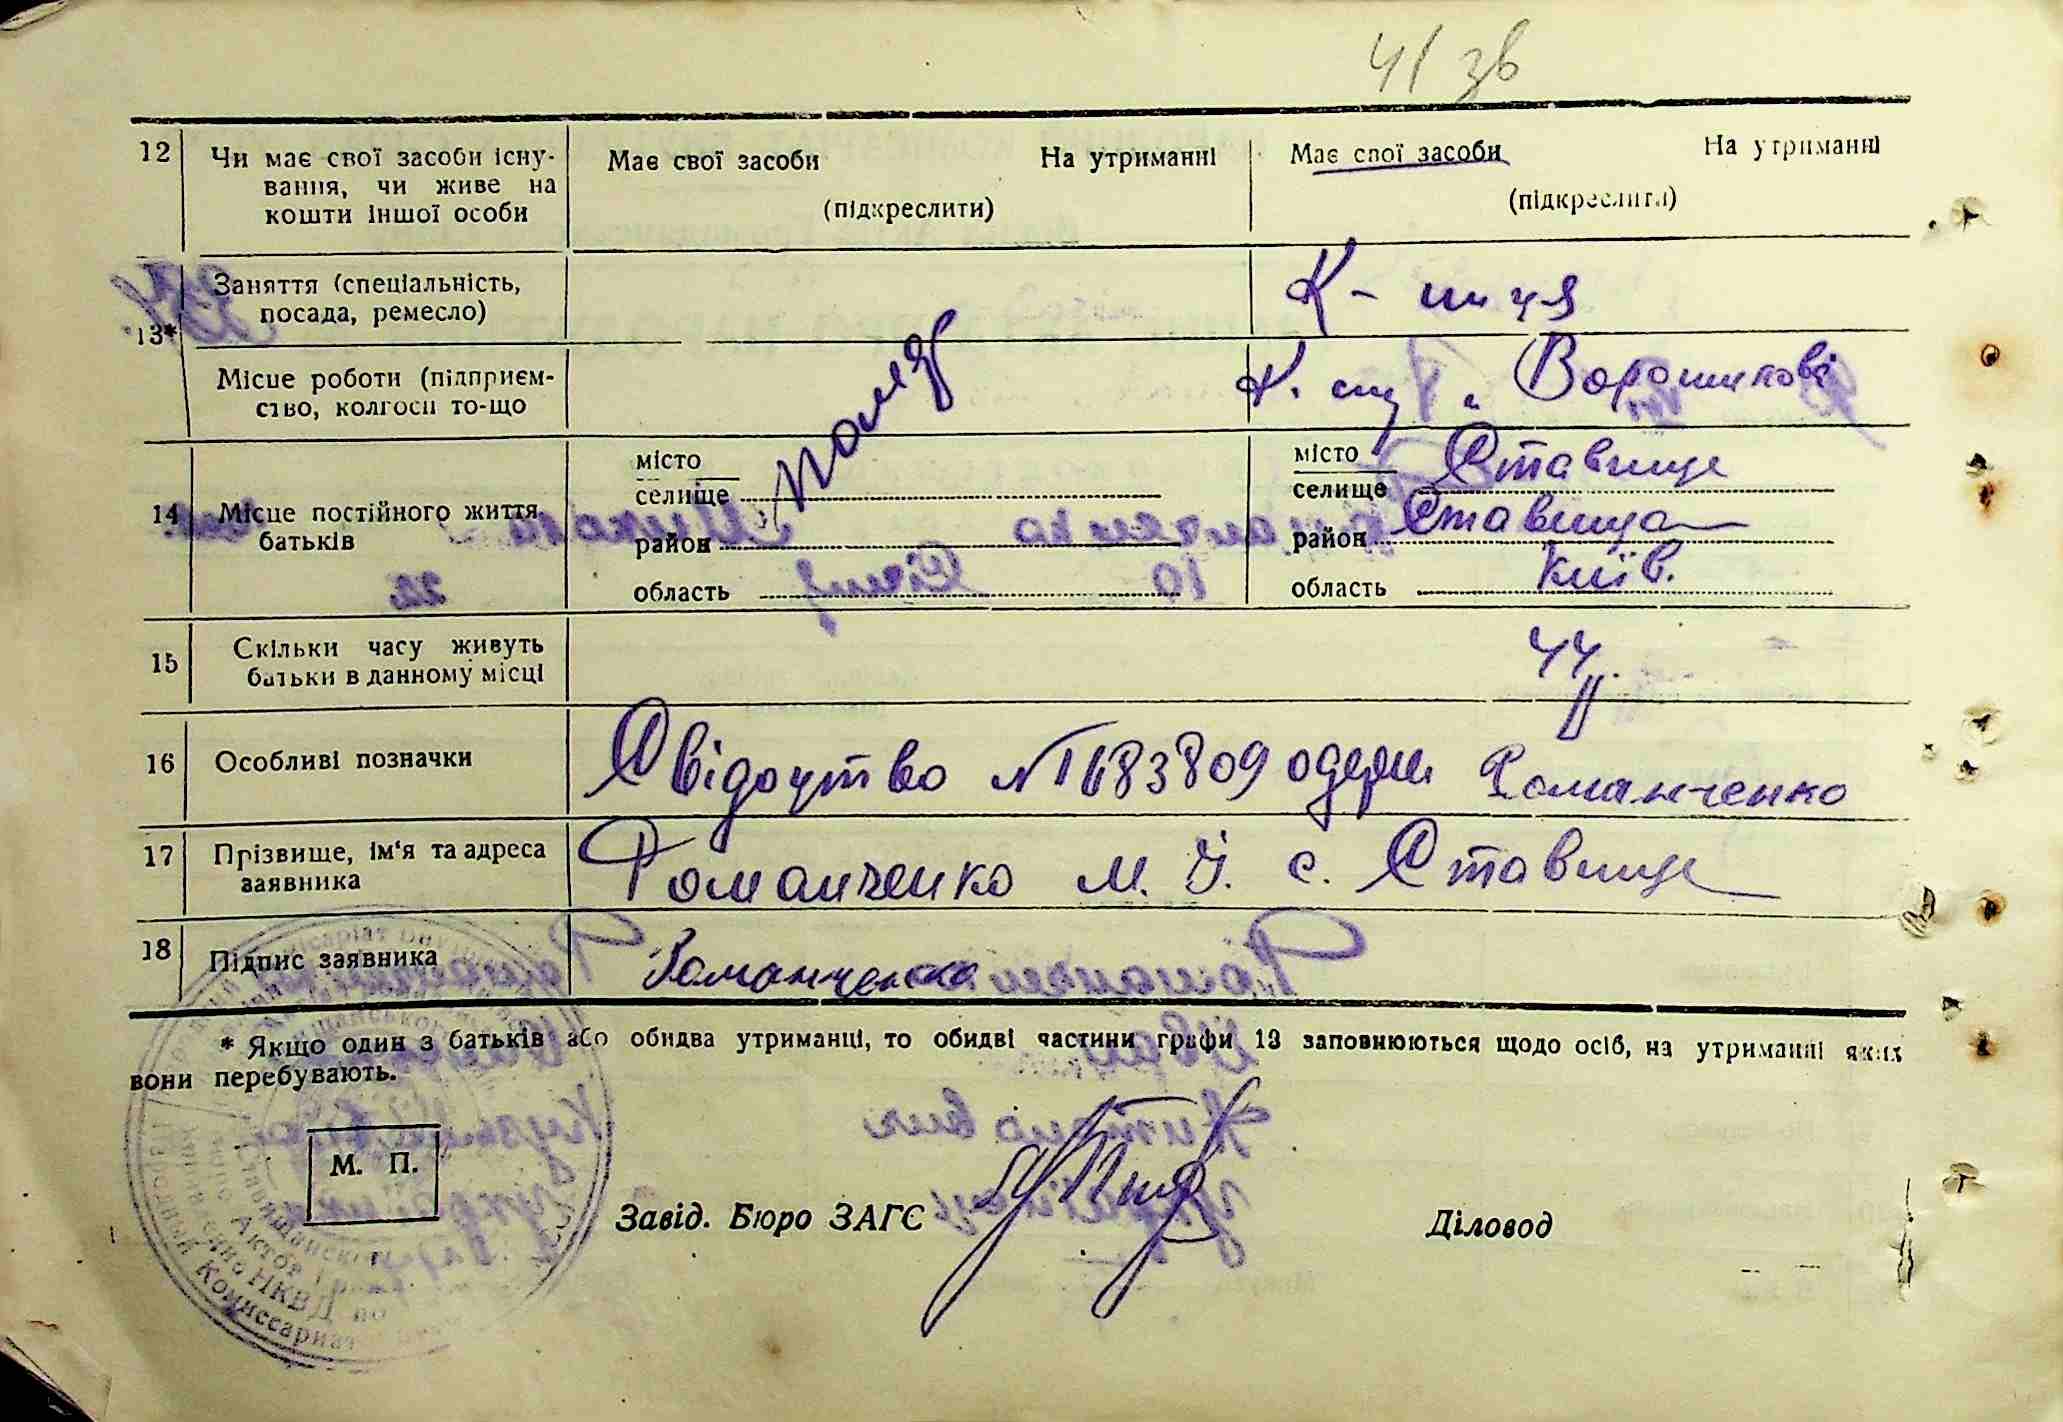 41 зв
12 Чи має свої засоби існу- Має свої засоби На утриманні Має свої засоби На утриманні
вання, чи живе на
кошти іншої особи (підкреслити) (підкреслити)
13* Заняття (спеціальність, К-ниця
посада, ремесло)
Місце роботи (підприєм- К.
ство, колгосп то-що
помер
14 Місце постійного життя батьків
місто місто
селище селище Ставище
район район Ставища
область область Київ.
15 Скільки часу живуть 44
батьки в данному місці
16 Особливі позначки Свідоцтво № 1683809 одерж Романченко
17 Прізвище, ім'я та адреса Романченко М. Й. с. Ставище
заявника
18 Підпис заявника Романченко
* Якщо один з батьків або обидва утриманці, то обидві частини графи 13 заповнюються щодо осіб, на утриманні яких
вони перебувають.
М. П.
Завід. Бюро ЗАГС Діловод